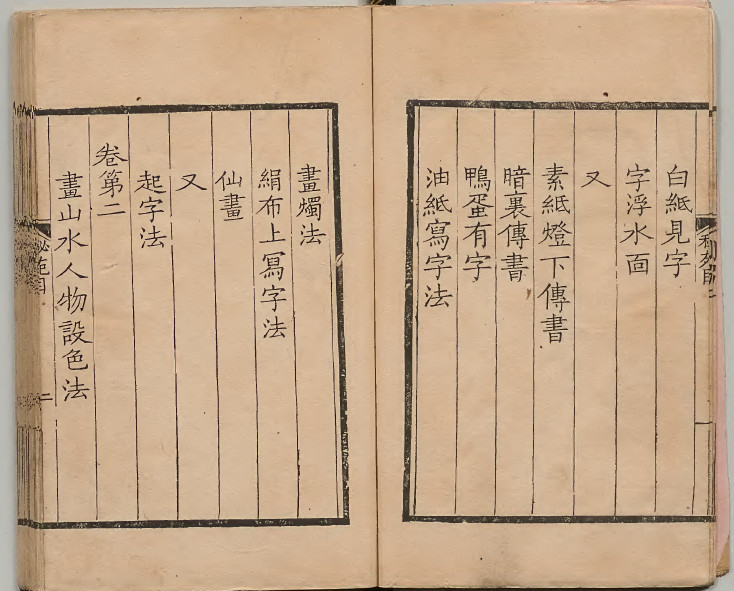 白紙見字
字浮水面
又
素紙燈下傳書
暗裏傳書
鴨蛋有字
油紙寫字法
畫燭法
絹布上寫字法
仙畫
又
起字法
卷第二
畫山水人物設色法
二